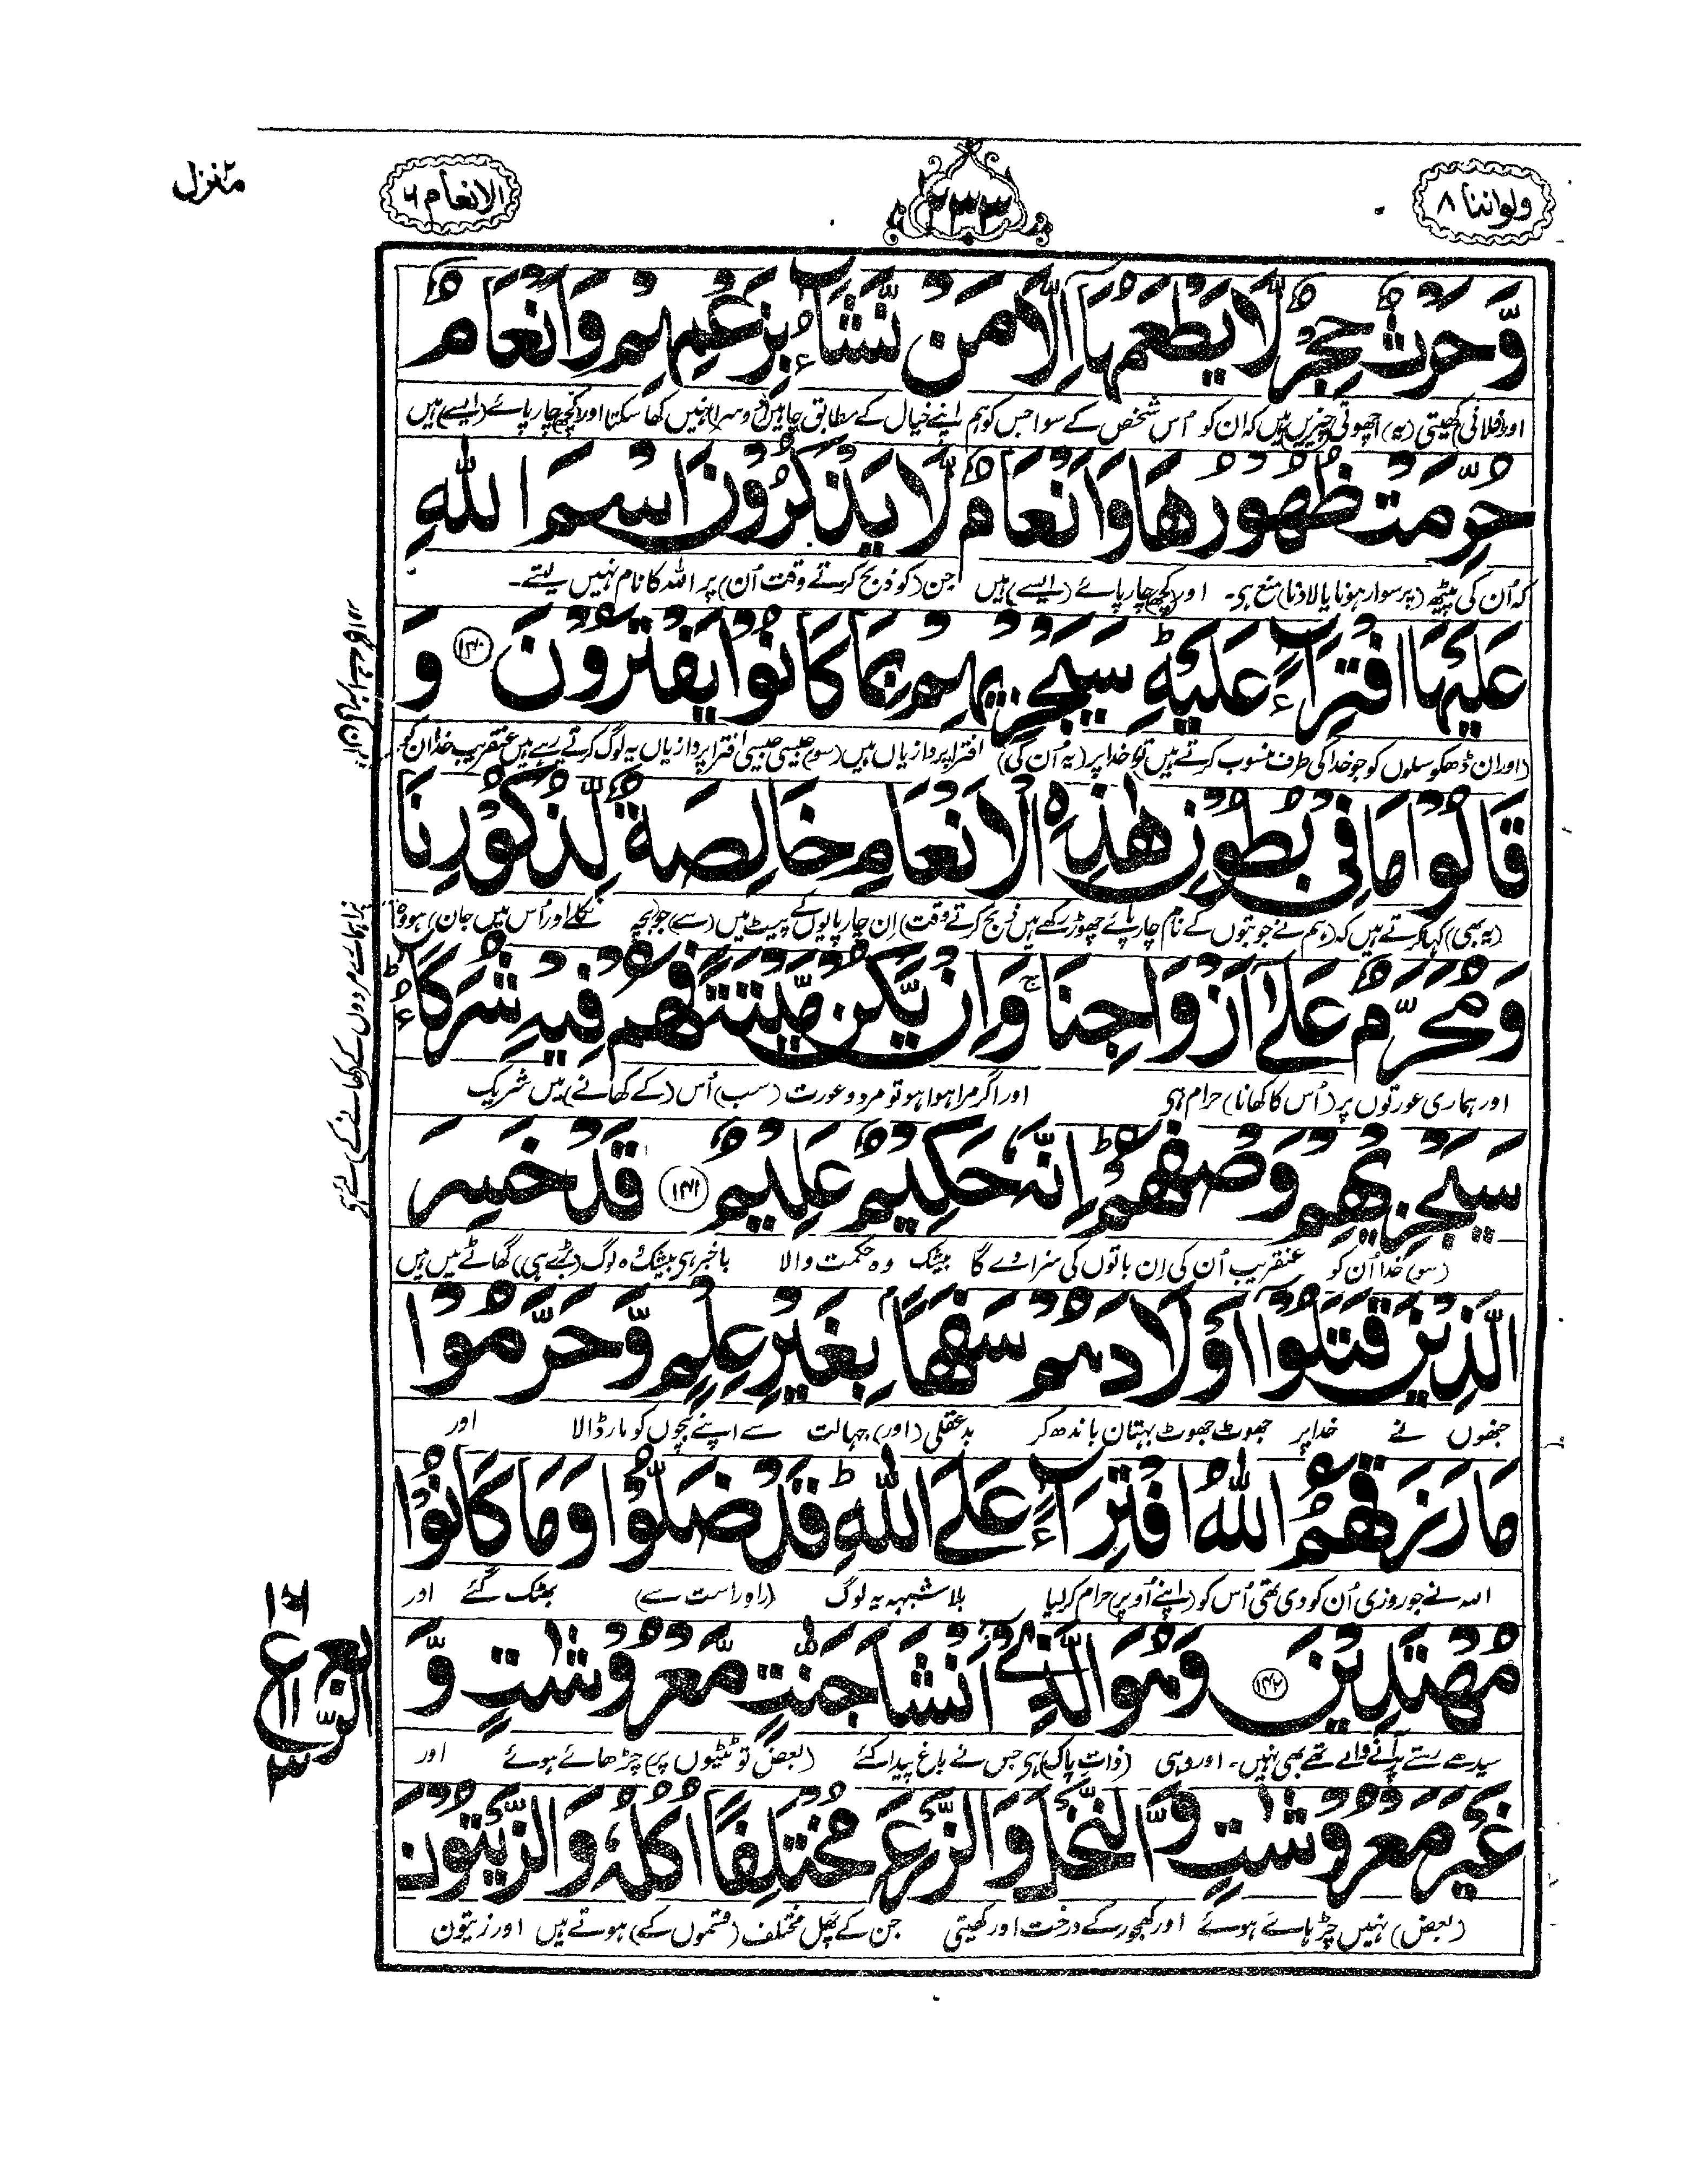 ولواننا ۸
۲۳۳
الانعام ۶
منزل۲
وَّحَرْثٌ حِجْرٌ لَّا یَطْعَمُهَاۤ اِلَّا مَنْ نَّشَآءُ بِزَعْمِهِمْ وَاَنْعَامٌ
اور (فلانی) کھیتی (یہ) اچھوتی چیزیں ہیں کہ ان کو اُس شخص کے سوا جس کو ہم اپنے خیال کے مطابق چاہیں (دوسرا) نہیں کھا سکتا اور (کچھ) چارپائے (ایسے) ہیں
حُرِّمَتْ ظُهُوْرُهَا وَاَنْعَامٌ لَّا یَذْكُرُوْنَ اسْمَ اللّٰهِ
کہ اُن کی پیٹھ (پر سوار ہونا یا لادنا) منع ہی۔ اور (کچھ) چارپائے (ایسے) ہیں جن (کو ذبح کرتے وقت اُن) پر اللہ کا نام نہیں لیتے۔
عَلَیْهَا افْتِرَآءً عَلَیْهِ ؕ سَیَجْزِیْهِمْ بِمَا كَانُوْا یَفْتَرُوْنَ ﴿۱۴۰﴾ وَ
(اور ان ڈھکوسلوں کو جو خدا کی طرف منسوب کرتے ہیں تو) خدا پر (یہ اُن کی) افترا پردازیاں ہیں (سو) جیسی جیسی افترا پردازیاں یہ لوگ کرتے رہے ہیں عنقریب خدا ان کو
ان کی سزا دے گا اور
قَالُوْا مَا فِیْ بُطُوْنِ هٰذِهِ الْاَنْعَامِ خَالِصَةٌ لِّذُكُوْرِنَا
(یہ بھی) کہا کرتے ہیں کہ (ہم نے جو بتوں کے نام چارپائے چھوڑ رکھے ہیں ذبح کرتے وقت) اِن چارپایوں کے پیٹ میں (سے) جو (بچہ نکلے اور اُس میں جان) ہو وہ
نرا ہمارے مردوں کے (کھانے کے) لئے ہی
وَمُحَرَّمٌ عَلٰۤی اَزْوَاجِنَا ۚ وَاِنْ یَّكُنْ مَّیْتَةً فَهُمْ فِیْهِ شُرَكَآءُ ؕ
اور ہماری عورتوں پر (اُس کا کھانا) حرام ہی اور اگر مرا ہوا ہو تو مرد و عورت (سب) اُس (کے کھانے) میں شریک
سَیَجْزِیْهِمْ وَصْفَهُمْ ؕ اِنَّهٗ حَكِیْمٌ عَلِیْمٌ ﴿۱۴۱﴾ قَدْ خَسِرَ
(سو) خدا اُن کو عنقریب اُن کی اِن باتوں کی سزا دے گا بیشک وہ حکمت والا باخبر ہی بیشک وہ لوگ (بڑے ہی) گھاٹے میں ہیں
الَّذِیْنَ قَتَلُوْۤا اَوْلَادَهُمْ سَفَهًۢا بِغَیْرِ عِلْمٍ وَّحَرَّمُوْا
جنھوں نے خدا پر جھوٹ جھوٹ بہتان باندھ کر بدعقلی (اور) جہالت سے اپنے بچوں کو مار ڈالا اور
مَا رَزَقَهُمُ اللّٰهُ افْتِرَآءً عَلَی اللّٰهِ ؕ قَدْ ضَلُّوْا وَمَا كَانُوْا
اللہ نے جو روزی اُن کو دی تھی اُس کو (اپنے اُوپر) حرام کر لیا بلاشبہہ یہ لوگ (راہ راست سے) بھٹک گئے اور
مُهْتَدِیْنَ ﴿۱۴۲﴾ وَهُوَ الَّذِیْۤ اَنْشَاَ جَنّٰتٍ مَّعْرُوْشٰتٍ وَّ
سیدھے رستے پر آنے والے تھے بھی نہیں۔ اور وہی (ذات پاک) ہی جس نے باغ پیدا کئے (بعض تو ٹٹیوں پر) چڑھائے ہوئے اور
غَیْرَ مَعْرُوْشٰتٍ وَّالنَّخْلَ وَالزَّرْعَ مُخْتَلِفًا اُكُلُهٗ وَالزَّیْتُوْنَ
(بعض) نہیں چڑہائے ہوئے اور کھجور کے درخت اور کھیتی جن کے پھل مختلف (قسموں کے) ہوتے ہیں اور زیتون
ع
الربع
۳